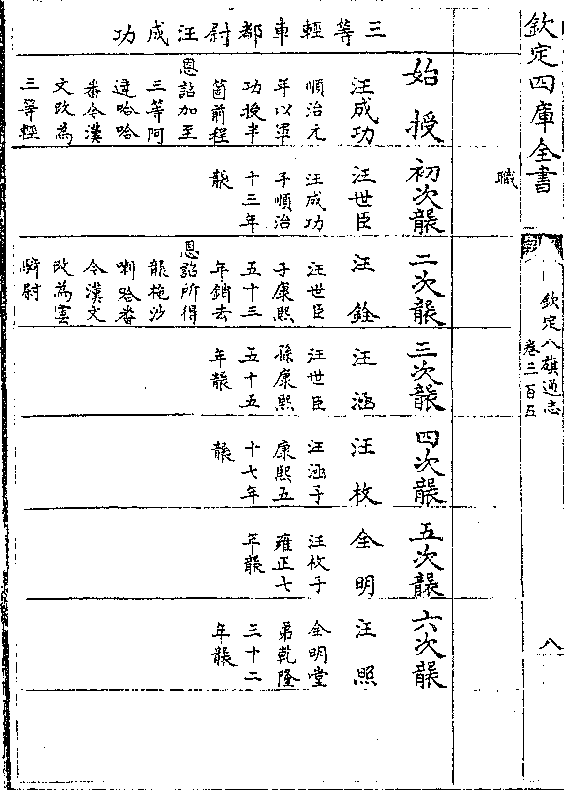 欽定四庫全書
欽定八旗通志
卷三百五
八
職
三等輕車都尉汪成功
始授
汪成功
順治元
年以軍
功授半
箇前程
恩詔加至
三等阿
達哈哈
番今漢
文改為
三等輕
初次襲
汪世臣
汪成功
子順治
十三年
襲
二次襲
汪銓
汪世臣
子康熙
五十三
年銷去
恩詔所得
襲拖沙
喇哈番
今漢文
改為雲
騎尉
三次襲
汪涵
汪世臣
孫康熙
五十五
年襲
四次襲
汪枚
汪涵子
康熙五
十七年
襲
五次襲
全明
汪枚子
雍正七
年襲
六次襲
汪照
全明堂
弟乾隆
三十二
年襲